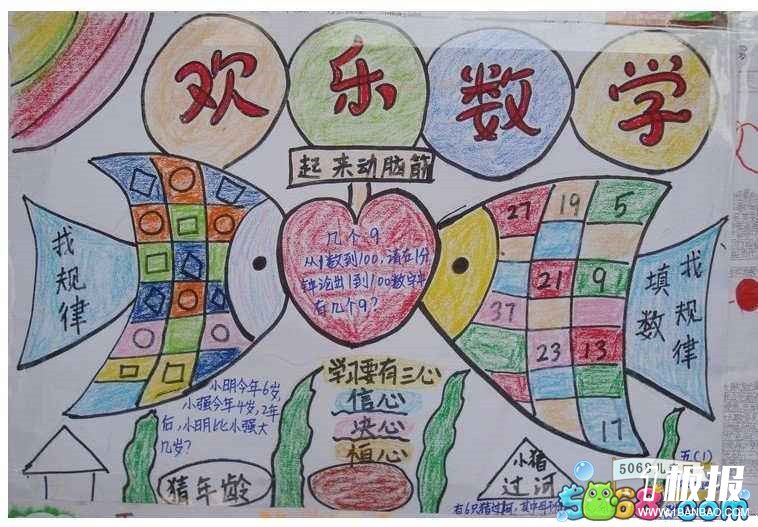 欢乐数学
起来动脑筋
找规律
几个9
从1数到100,请在1分
钟论出1到100数字中
有几个9?
27 19 5
21 9
37
23 13
17
找规律
填数
小明今年6岁,
小强今年4岁,2年
后,小明比小强大
几岁?
猜年龄
学习要有三心
信心
决心
恒心
小猪
过河
有6只猪过河,其中
五(1)
5068儿
1极报
1BANBAO.COM